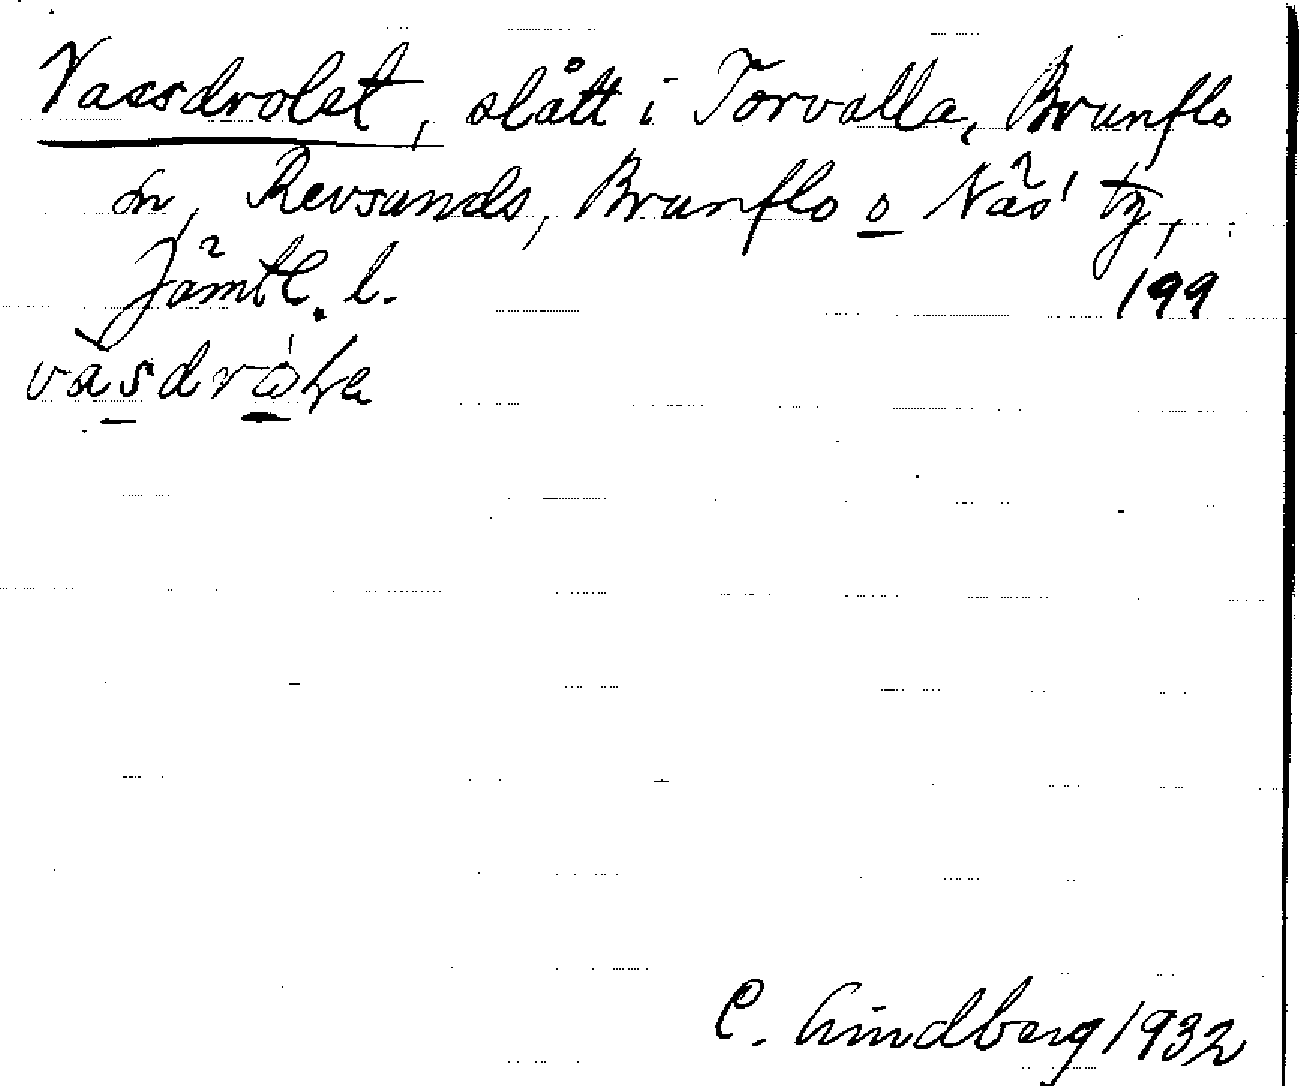 Vassdrolet, slått i Torvalla, Brunflo
sn, Revsunds, Brunflo o Näs' tg,
Jämtl. l.
199
C. Lindberg 1932